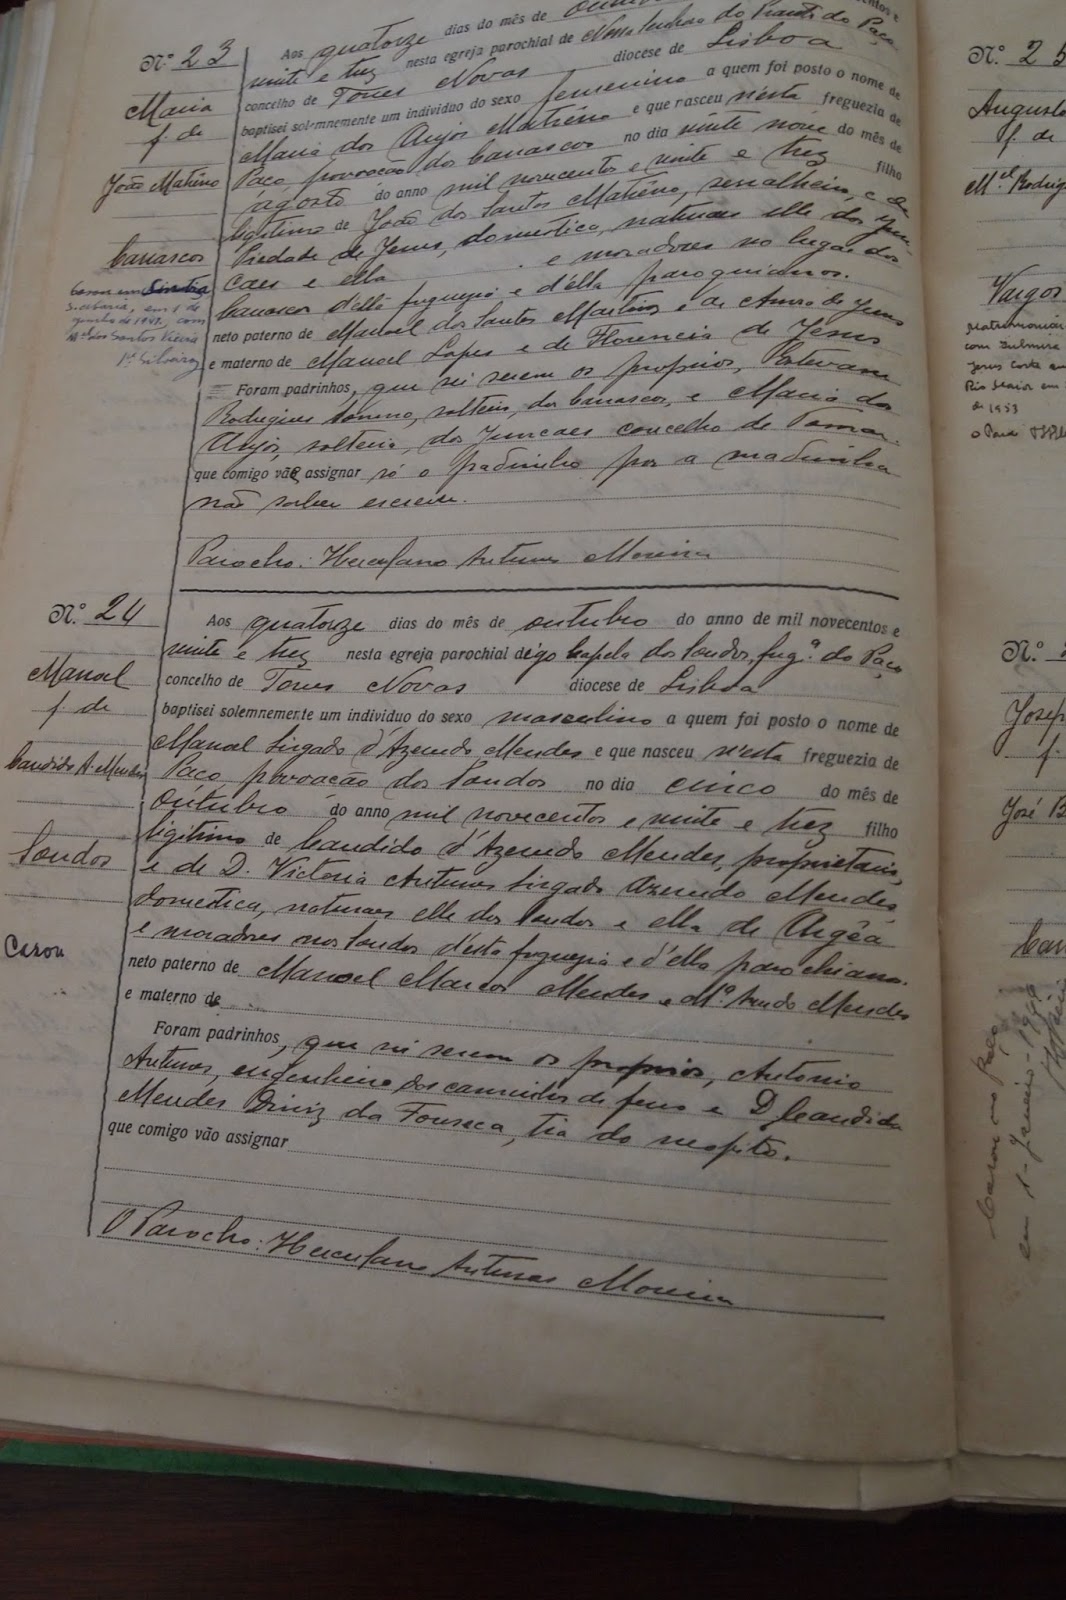 Nº 23
Maria
f. de
João Matheno
Carrascos
Aos quatorze dias do mês de
vinte e trez nesta egreja parochial de Nossa Senhora do Paço
concelho de Torres Novas diocese de Lisboa
baptisei solemnemente um individuo do sexo femenino a quem foi posto o nome de
Maria dos Anjos e que nasceu n'esta freguezia de
Paço, povoação dos Carrascos no dia vinte nove do mês de
agosto do anno mil novecentos e vinte e trez filho
legitimo de João dos Santos serralheiro, e de
Piedade de Jesus, domestica, naturaes elle dos Jun
caes e ella e moradores no lugar dos
Carrascos d'esta freguezia e d'ella paroquianos.
neto paterno de Manoel dos Santos Martins e de Anna de Jesus
e materno de Manoel Lopes e de Florencia de Jesus
Foram padrinhos, que sei serem os proprios, Estevam
Rodrigues solteiro, dos Carrascos, e Maria dos
Anjos, solteira, dos Juncaes concelho de Tomar.
que comigo vae assignar só o padrinho por a madrinha
não saber escrever.
Parocho: Herculano Antunes Moreira
Nº 24
Manoel
f. de
Candido A. Mendes
Soudos
Casou
Aos quatorze dias do mês de outubro do anno de mil novecentos e
vinte e trez nesta egreja parochial digo Capela dos Soudos, fregª do Paço
concelho de Torres Novas diocese de Lisboa
baptisei solemnemente um individuo do sexo masculino a quem foi posto o nome de
Manoel Sirgado d'Azevedo Mendes e que nasceu n'esta freguezia de
Paço povoação dos Soudos no dia cinco do mês de
Outubro do anno mil novecentos e vinte e trez filho
legitimo de Candido d'Azevedo Mendes, proprietario,
e de D. Victoria Antunes Sirgado Azevedo Mendes,
domestica, naturaes elle dos Soudos e ella de Argêa
e moradores nos Soudos d'esta freguezia e d'ella parochianos.
neto paterno de Manoel Marcos Mendes e Mª Mendes
e materno de
Foram padrinhos, que sei serem os proprios, Antonio
Antunes, engenheiro dos caminhos de ferro e D Candida
Mendes Diniz da Fonseca, tia do neofito.
que comigo vão assignar
O Parocho: Herculano Antunes Moreira
Nº. 25
Augusto
f. de
Mel Rodrig
Vargos
de 1953
Nº.
José B